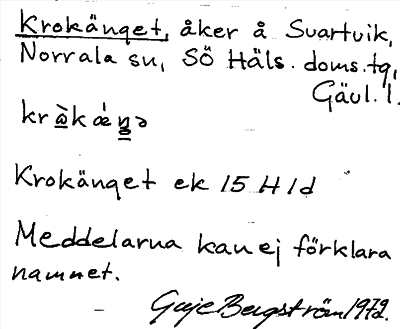 Krokänget, åker å Svartvik,
Norrala sn, SÖ Häls. doms.tg,
Gävl. l.
Krokänget ek 15 H 1d
Meddelarna kan ej förklara
namnet.
Bergström 1972.